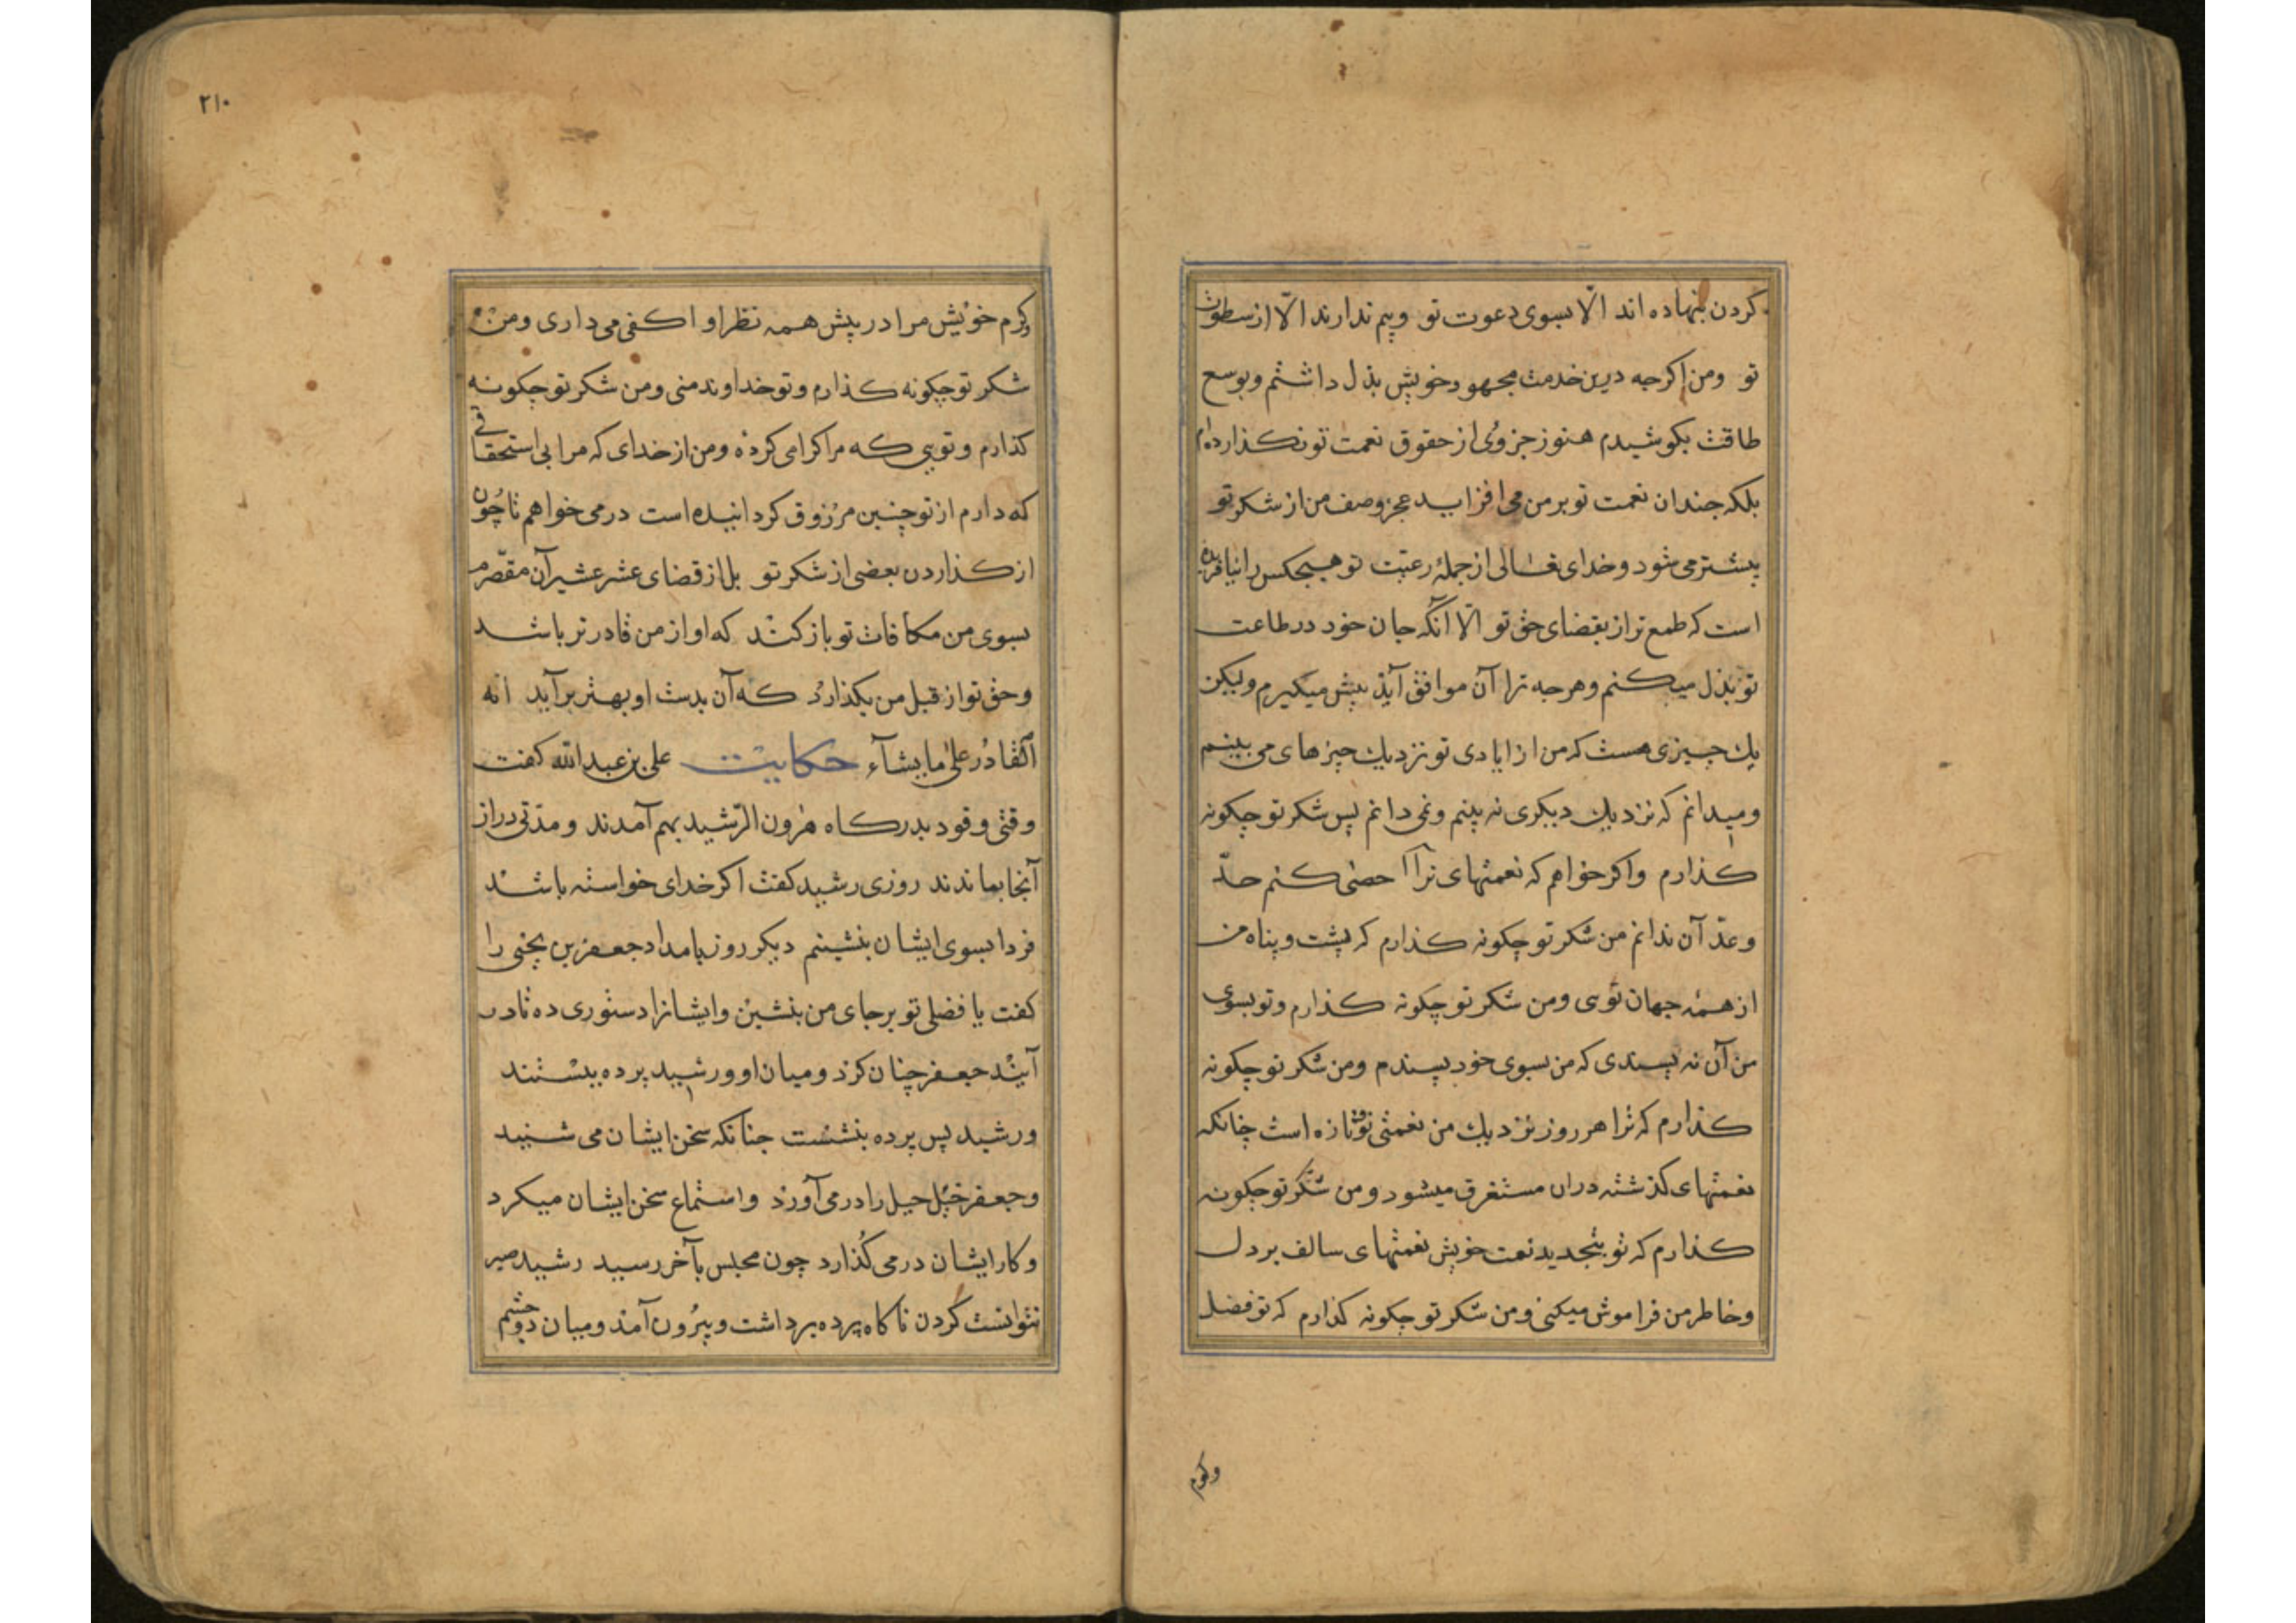 کردن بنهاده اند الّا بسوی دعوت تو وبیم ندارند الّا از سطوت
تو ومن اکرجه درین خدمت مجهود خویش بذل داشتم وبوسع
طاقت بکوشیدم هنوز جزوی از حقوق نعمت تو نکذارده‌ام
بلکه جندان نعمت تو بر من می افزاید عجز وصف من از شکر تو
بیشتر می شود وخدای تعالی از جملهٔ رعیّت تو هیجکس را نیافریده
است که طمع تر از بقضای حق تو الّا آنکه جان خود در طاعت
تو بذل میکنم وهرجه ترا آن موافق آیذ بیش میکیرم ولیکن
یك چیزی هست که من از ایادی تو نزدیك چیزهای می بینم
ومیدانم که نزدیك دیکری نه بینم ونمی دانم پس شکر تو چکونه
کذارم واکر خواهم که نعمتهای ترا احصی کنم حدّ
وعدّ آن ندانم من شکر تو چکونه کذارم که پشت وپناه من
از همه جهان توی ومن شکر تو چکونه کذارم وتو بسوی
من آن نه پسندی که من بسوی خود پسندم ومن شکر تو چکونه
کذارم که ترا هر روز نزدیك من نعمتی نو وتازه است چنانکه
نعمتهای کذشته دران مستغرق میشود ومن شکر تو جکونه
کذارم که تو بتجدید نعمت خویش نعمتهای سالف بر دل
وخاطر من فراموش میکنی ومن شکر تو جکونه کذارم که تو فضل
وکرم
۲۱۰
وکرم خویش مرا در پیش همه نظرا واکفی می داری ومن
شکر تو چکونه کذارم وتو خداوند منی ومن شکر تو چکونه
کذارم وتویی که مرا کرامی کرده ومن از خدای که مرا بی استحقاقی
که دارم از تو چنین مرزوق کردانیده است درمی خواهم تا چون
از کذاردن بعضی از شکر تو بل از قضای عشر عشیر آن مقصّرم
بسوی من مکافات تو باز کند که او از من قادرتر باشد
وحق تو از قبل من بکذارد که آن بدست او بهتر برآید انه
القادر علی ما یشآء حکایت علی بن عبد الله کفت
وقتی وفود بدرکاه هرون الرّشید بهم آمدند ومدّتی دراز
آنجا بماندند روزی رشید کفت اکر خدای خواسته باشد
فردا بسوی ایشان بنشینم دیکر روز بامداد جعفر بن یحیی را
کفت یا فضلی تو بر جای من بنشین وایشانرا دستوری ده تا در
آیند جعفر چنان کرد ومیان او ورشید پرده ببستند
ورشید پس پرده بنشست جنانکه سخن ایشان می شنید
وجعفر خیل خیل را درمی آورد واستماع سخن ایشان میکرد
وکار ایشان درمی کُذارد چون مجلس بآخر رسید رشید صبر
نتوانست کردن ناکاه پرده برداشت وبیرون آمذ ومیان دو چشم